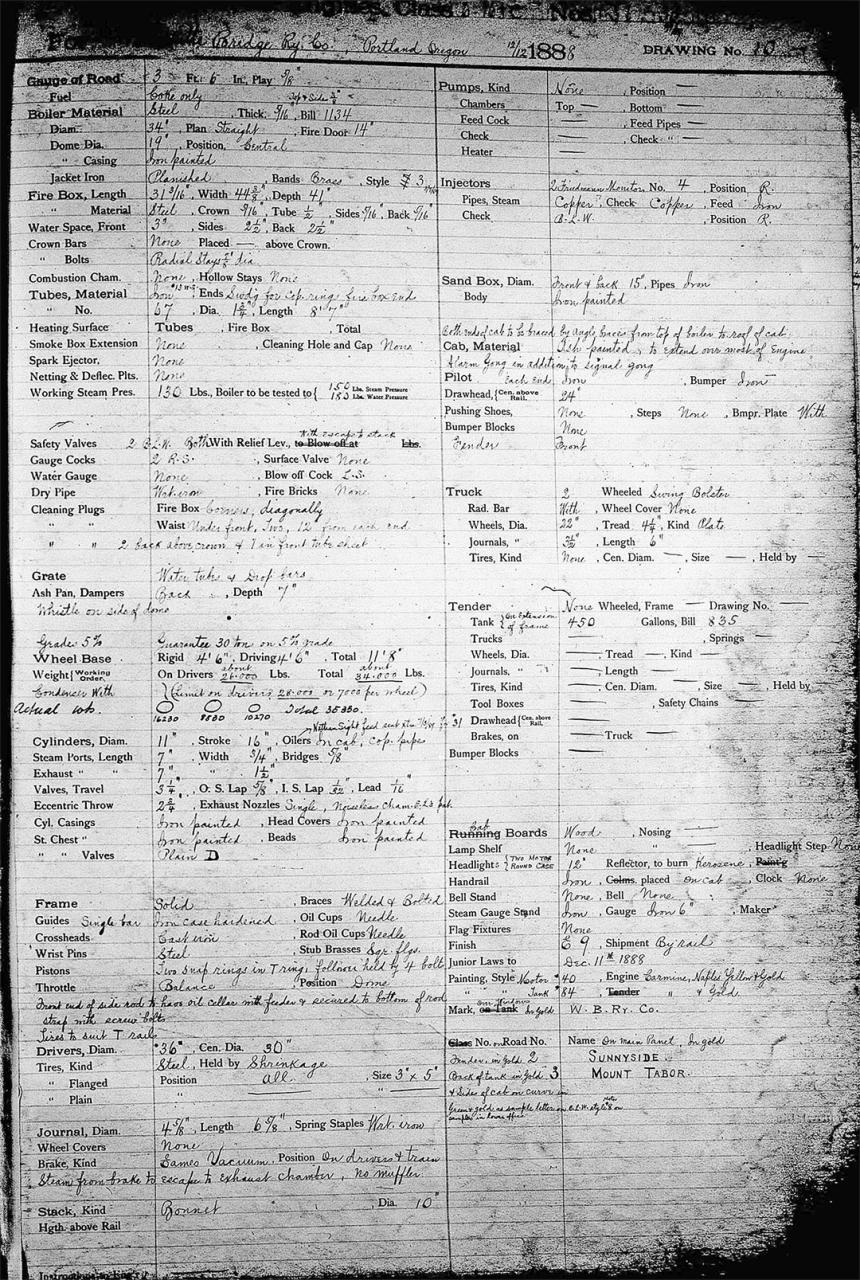 Bridge Ry. Co., Portland Oregon 12/12 1888 DRAWING No. 10
Gauge of Road 3 Ft. 6 In., Play 5/8"
Fuel Coke only
Boiler Material Steel, Thick. 5/16, Bill 1134
Diam. 34", Plan Straight, Fire Door 14"
Dome Dia. 19", Position, Central
" Casing Iron painted
Jacket Iron Planished, Bands Brass, Style 3
Fire Box, Length 31 3/16", Width 44 3/8", Depth 41"
" Material Steel, Crown 5/16, Tube 1/2, Sides 5/16, Back 5/16
Water Space, Front 3", Sides 2 1/2", Back 2 1/2"
Crown Bars None Placed — above Crown.
" Bolts Radial Stays 7/8" dia
Combustion Cham. None, Hollow Stays None
Tubes, Material Iron #13 W.G. Ends Swdg for cop. ring, fire box end
" No. 67, Dia. 1 3/4", Length 8' 7"
Heating Surface Tubes , Fire Box , Total
Smoke Box Extension None , Cleaning Hole and Cap None
Spark Ejector, None
Netting & Deflec. Plts. None
Working Steam Pres. 130 Lbs., Boiler to be tested to { 150 Lbs. Steam Pressure
183 Lbs. Water Pressure
With escape to stack
Safety Valves 2 B.L.W. Both With Relief Lev., to Blow off at Lbs.
Gauge Cocks 2 R.S. , Surface Valve None
Water Gauge None , Blow off Cock L.S.
Dry Pipe Wrt. iron , Fire Bricks None
Cleaning Plugs Fire Box Corners, diagonally
" " Waist Under front, Two, 12" from each end
" " 2 back above crown & 1 in front tube sheet
Grate Water tube & Drop bars
Ash Pan, Dampers Back , Depth 7"
Whistle on side of dome
Grades 5% Guarantee 30 ton on 5% grade
Wheel Base Rigid 4' 6", Driving 4' 6", Total 11' 8"
Weight { Working Order, On Drivers about 26.000 Lbs. Total about 34.000 Lbs.
Condenser With (Limit on drivers 28.000 or 7000 per wheel)
Actual wts. 16230 8850 10270 Total 35350.
Nathan Sight feed sent
Cylinders, Diam. 11", Stroke 16", Oilers In cab, cop. pipe
Steam Ports, Length 7", Width 3/4", Bridges 5/8"
Exhaust " " 7" " 1 1/2"
Valves, Travel 3 1/4", O. S. Lap 5/8", I. S. Lap 1/32", Lead 1/16"
Eccentric Throw 2 3/4", Exhaust Nozzles Single, Noiseless cham.
Cyl. Casings Iron painted , Head Covers Iron painted
St. Chest " Iron painted , Beads Iron painted
" " Valves Plain D
Frame Solid , Braces Welded & Bolted
Guides Single bar Iron case hardened , Oil Cups Needle
Crossheads Cast iron , Rod Oil Cups Needle
Wrist Pins Steel , Stub Brasses Sqr. flgs.
Pistons Two snap rings in T ring; follower held by 4 bolts
Throttle Balance , Position Dome
Front end of side rod to have oil cellar with feeder & secured to bottom of rod
strap with screw bolts
Tires to suit T rail
Drivers, Diam. 36", Cen. Dia. 30"
Tires, Kind Steel, Held by Shrinkage
" Flanged Position all , Size 3" x 5"
" Plain " "
Journal, Diam. 4 5/8", Length 6 5/8", Spring Staples Wrt. iron
Wheel Covers None
Brake, Kind Eames Vacuum, Position On drivers & train
Steam from brake to escape to exhaust chamber, no muffler.
Stack, Kind Bonnet , Dia. 10"
Hgth. above Rail
Pumps, Kind None , Position —
Chambers Top — , Bottom —
Feed Cock — , Feed Pipes —
Check — , Check " —
Heater —
Injectors 2 Friedmann Monitor No. 4 , Position R.
Pipes, Steam Copper, Check Copper, Feed Iron
Check B.L.W. , Position R.
Sand Box, Diam. Front & back 15", Pipes Iron
Body Iron painted
Both ends of cab to be braced by angle braces from top of boiler to roof of cab.
Cab, Material Ash painted, to extend over most of Engine
Alarm Gong in addition to signal gong
Pilot Each end Iron , Bumper Iron
Drawhead, { Cen. above Rail. 24"
Pushing Shoes, None , Steps None , Bmpr. Plate With
Bumper Blocks None
Fender Front
Truck 2 Wheeled Swing Bolster
Rad. Bar With , Wheel Cover None
Wheels, Dia. 22" , Tread 4 1/4", Kind Plate
Journals, " 3 1/2" , Length 6"
Tires, Kind None , Cen. Diam. — , Size — , Held by —
Tender None Wheeled, Frame — Drawing No. —
Tank { On Extension of frame 450 Gallons, Bill 835
Trucks — , Springs —
Wheels, Dia. — , Tread — , Kind —
Journals, " — , Length —
Tires, Kind — , Cen. Diam. — , Size — , Held by
Tool Boxes — , Safety Chains —
Drawhead { Cen. above Rail. —
Brakes, on — Truck —
Bumper Blocks —
Cab
Running Boards Wood , Nosing —
Lamp Shelf None " — , Headlight Step None
Headlights { TWO MOTOR ROUND CASE 12" Reflector, to burn Kerozene, Paint'g
Handrail Iron , Colms. placed on cab , Clock None
Bell Stand None , Bell None
Steam Gauge Stand Iron , Gauge Iron 6" , Maker
Flag Fixtures None
Finish E 9 , Shipment By rail
Junior Laws to Dec. 11th 1888
Painting, Style Motor #40 , Engine Carmine, Naples Yellow & Gold
" " Tank #84 , Tender " & Gold
Mark, on Tank On Windows In Gold W. B. RY. CO.
Class No. on Road No. Name On main Panel, In gold
Fender, in Gold 2 SUNNYSIDE.
Back of tank in Gold 3 MOUNT TABOR.
& Sides of cab on curve in
Green & gold as sample letter on B.L.W. style
sample in house office